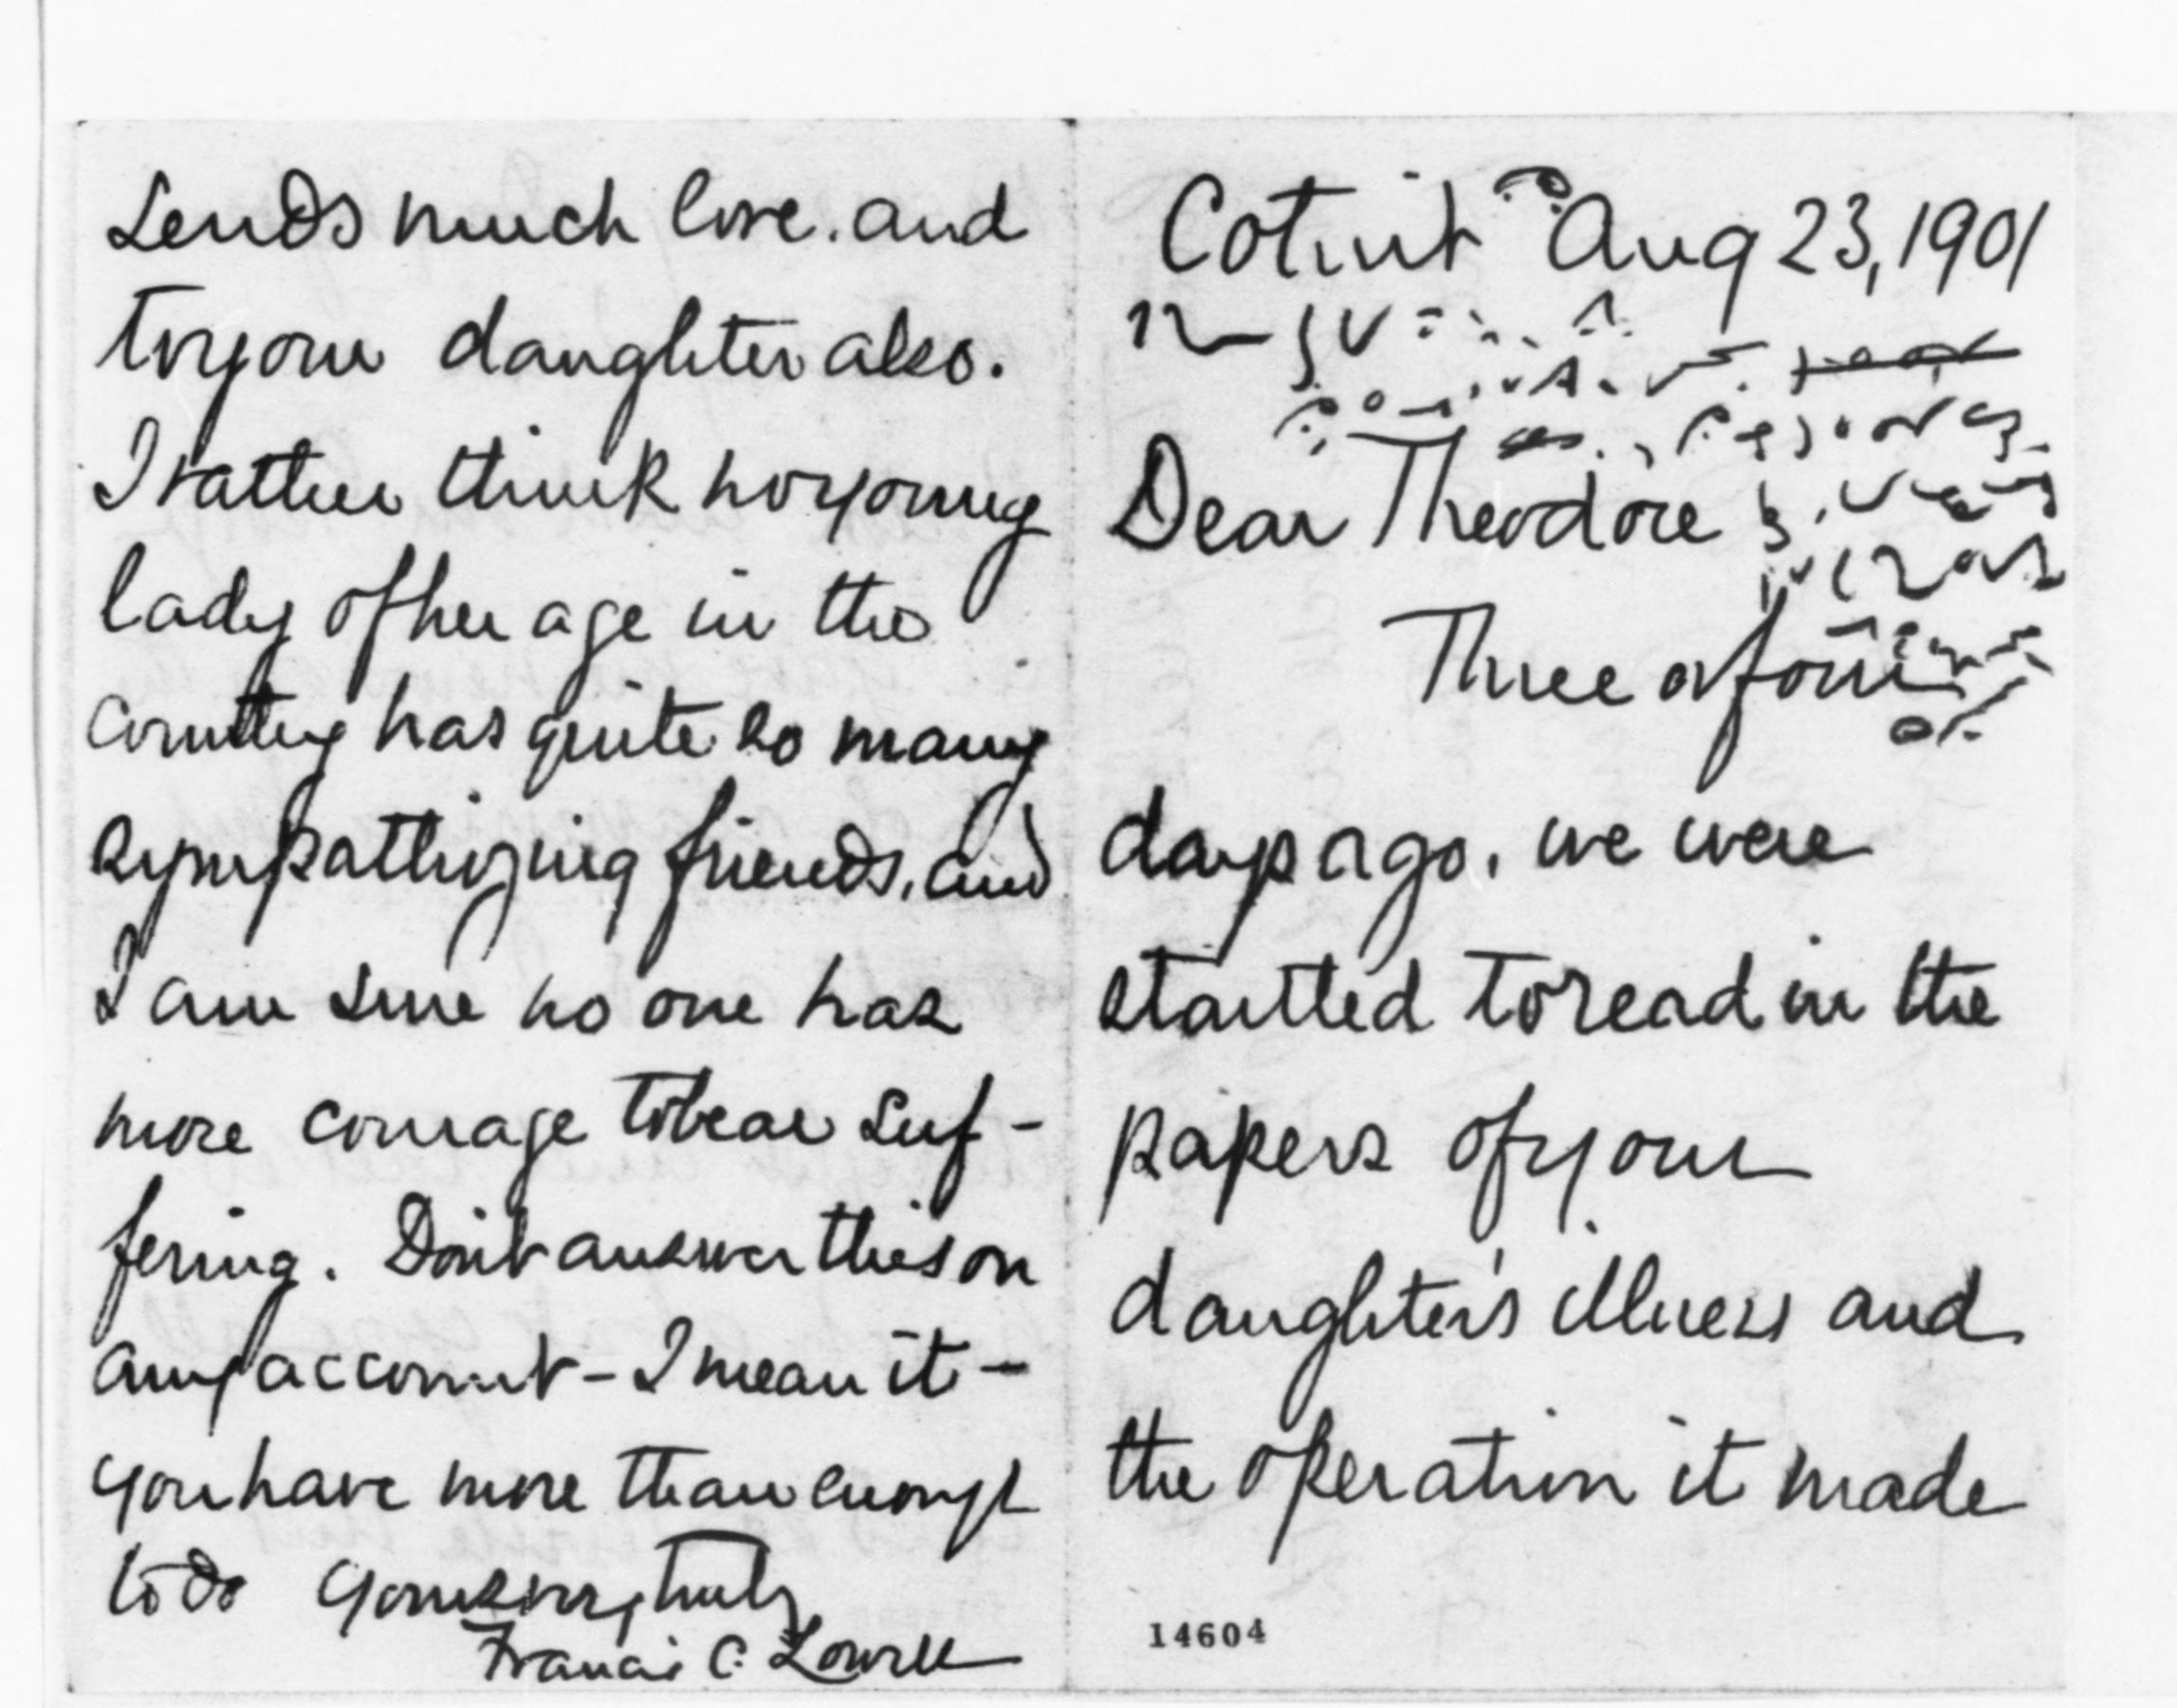 Cotuit Aug 23, 1901
Dear Theodore
Three or four
days ago, we were
startled to read in the
papers of your
daughter's illness and
the operation it made
14604
sends much love, and
to your daughter also.
I rather think no young
lady of her age in the
country has quite so many
sympathizing friends, and
I am sure no one has
more courage to bear suf-
fering. Don't answer this on
any account - I mean it -
you have more than enough
to do Yours very truly
Francis C. Lowell